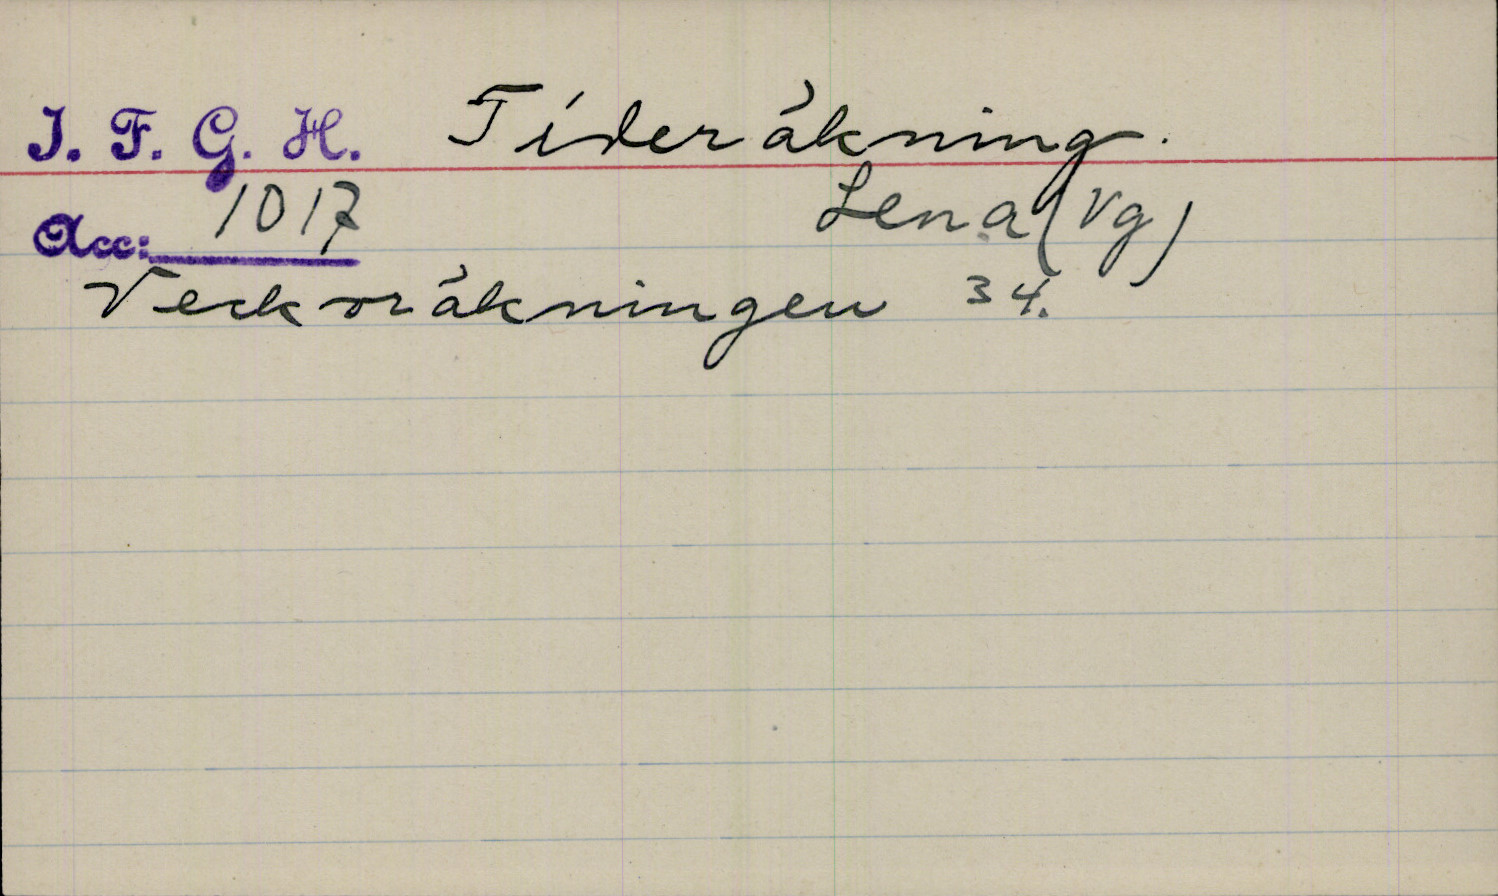 I. F. G. H. Tideräkning.
Acc: 1017 Lena (Vg)
Veckoräkningen 34.